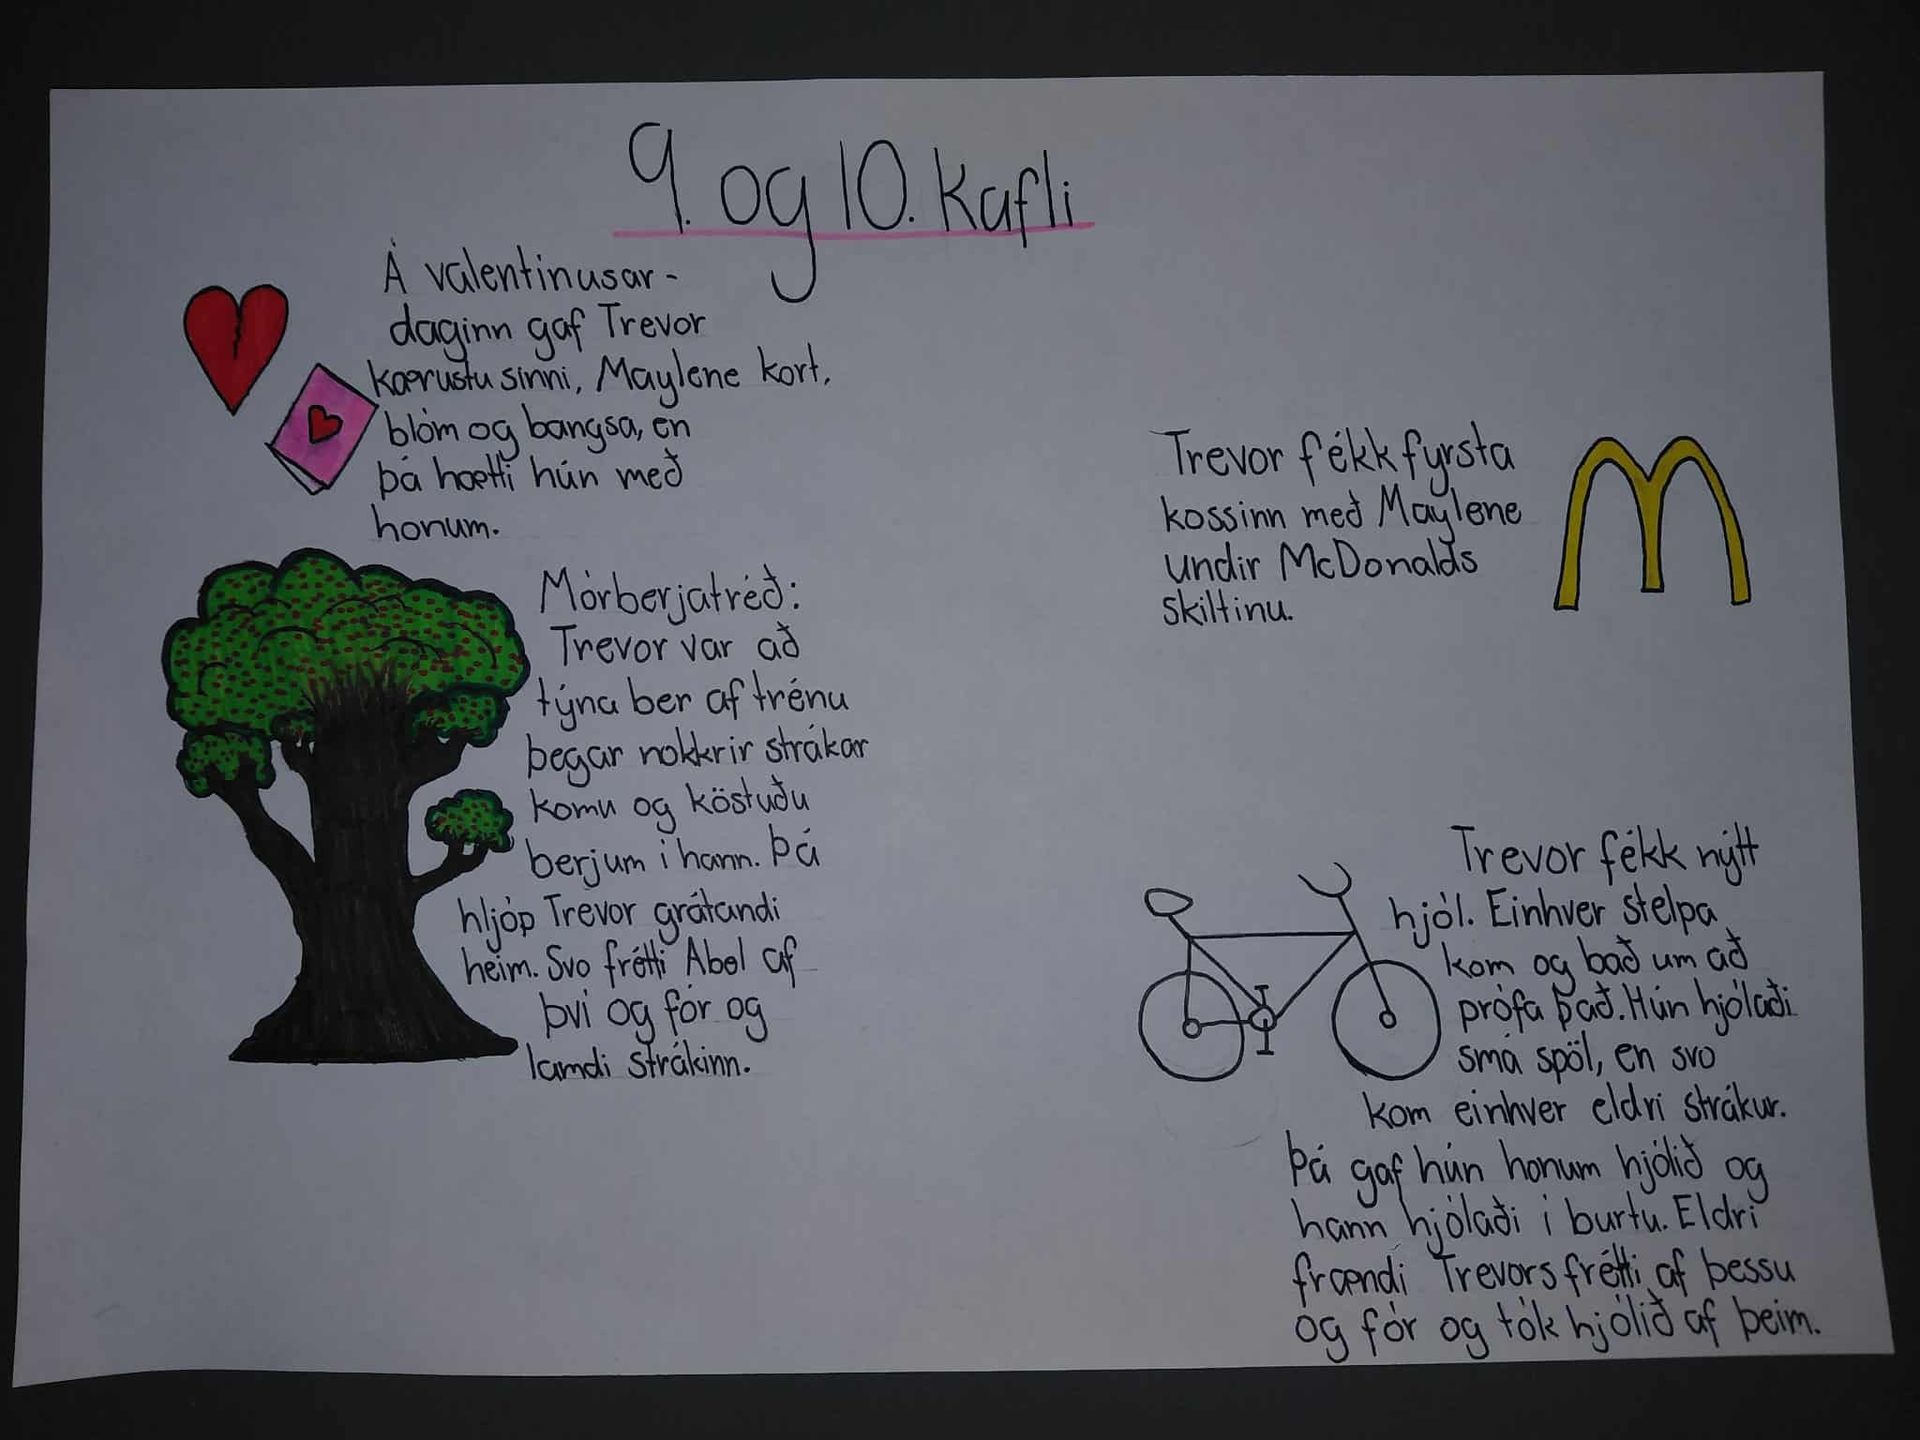 9. og 10. Kafli
Á valentinusar-
daginn gaf Trevor
kærustu sinni, Maylene kort,
blóm og bangsa, en
þá hætti hún með
honum.
Mórberjatréð:
Trevor var að
týna ber af trénu
þegar nokkrir strákar
komu og köstuðu
berjum í hann. Þá
hljóp Trevor grátandi
heim. Svo frétti Abel af
því og fór og
lamdi strákinn.
Trevor fékk fyrsta
kossinn með Maylene
undir McDonalds
skiltinu.
Trevor fékk nýtt
hjól. Einhver stelpa
kom og bað um að
prófa það. Hún hjólaði
smá spöl, en svo
kom einhver eldri strákur.
Þá gaf hún honum hjólið og
hann hjólaði í burtu. Eldri
frændi Trevors frétti af þessu
og fór og tók hjólið af þeim.